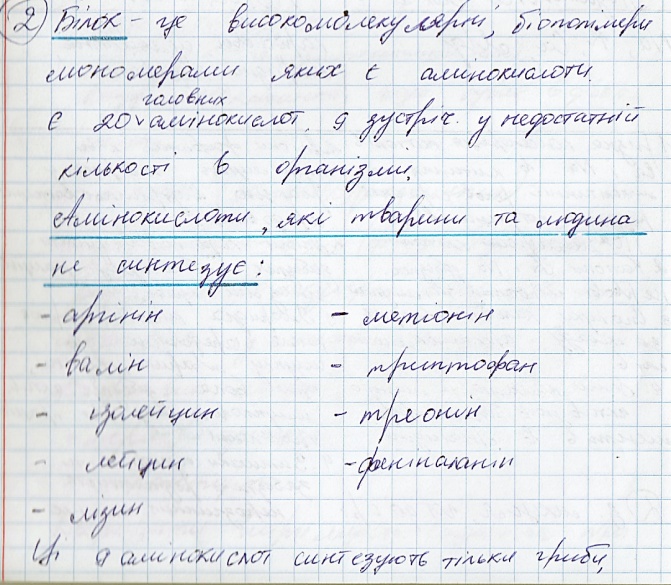 2) Білок – це високомолекулярні, біополімери
мономерами яких є амінокислоти.
головних
Є 20 амінокислот, 9 зустріч. у недостатній
кількості в організмі.
Амінокислоти, які тварини та людина
не синтезує:
- аргінін - метіонін
- валін - триптофан
- ізолейцин - треонін
- лейцин - фенілаланін
- лізин
Ці 9 амінокислот синтезують тільки гриби,